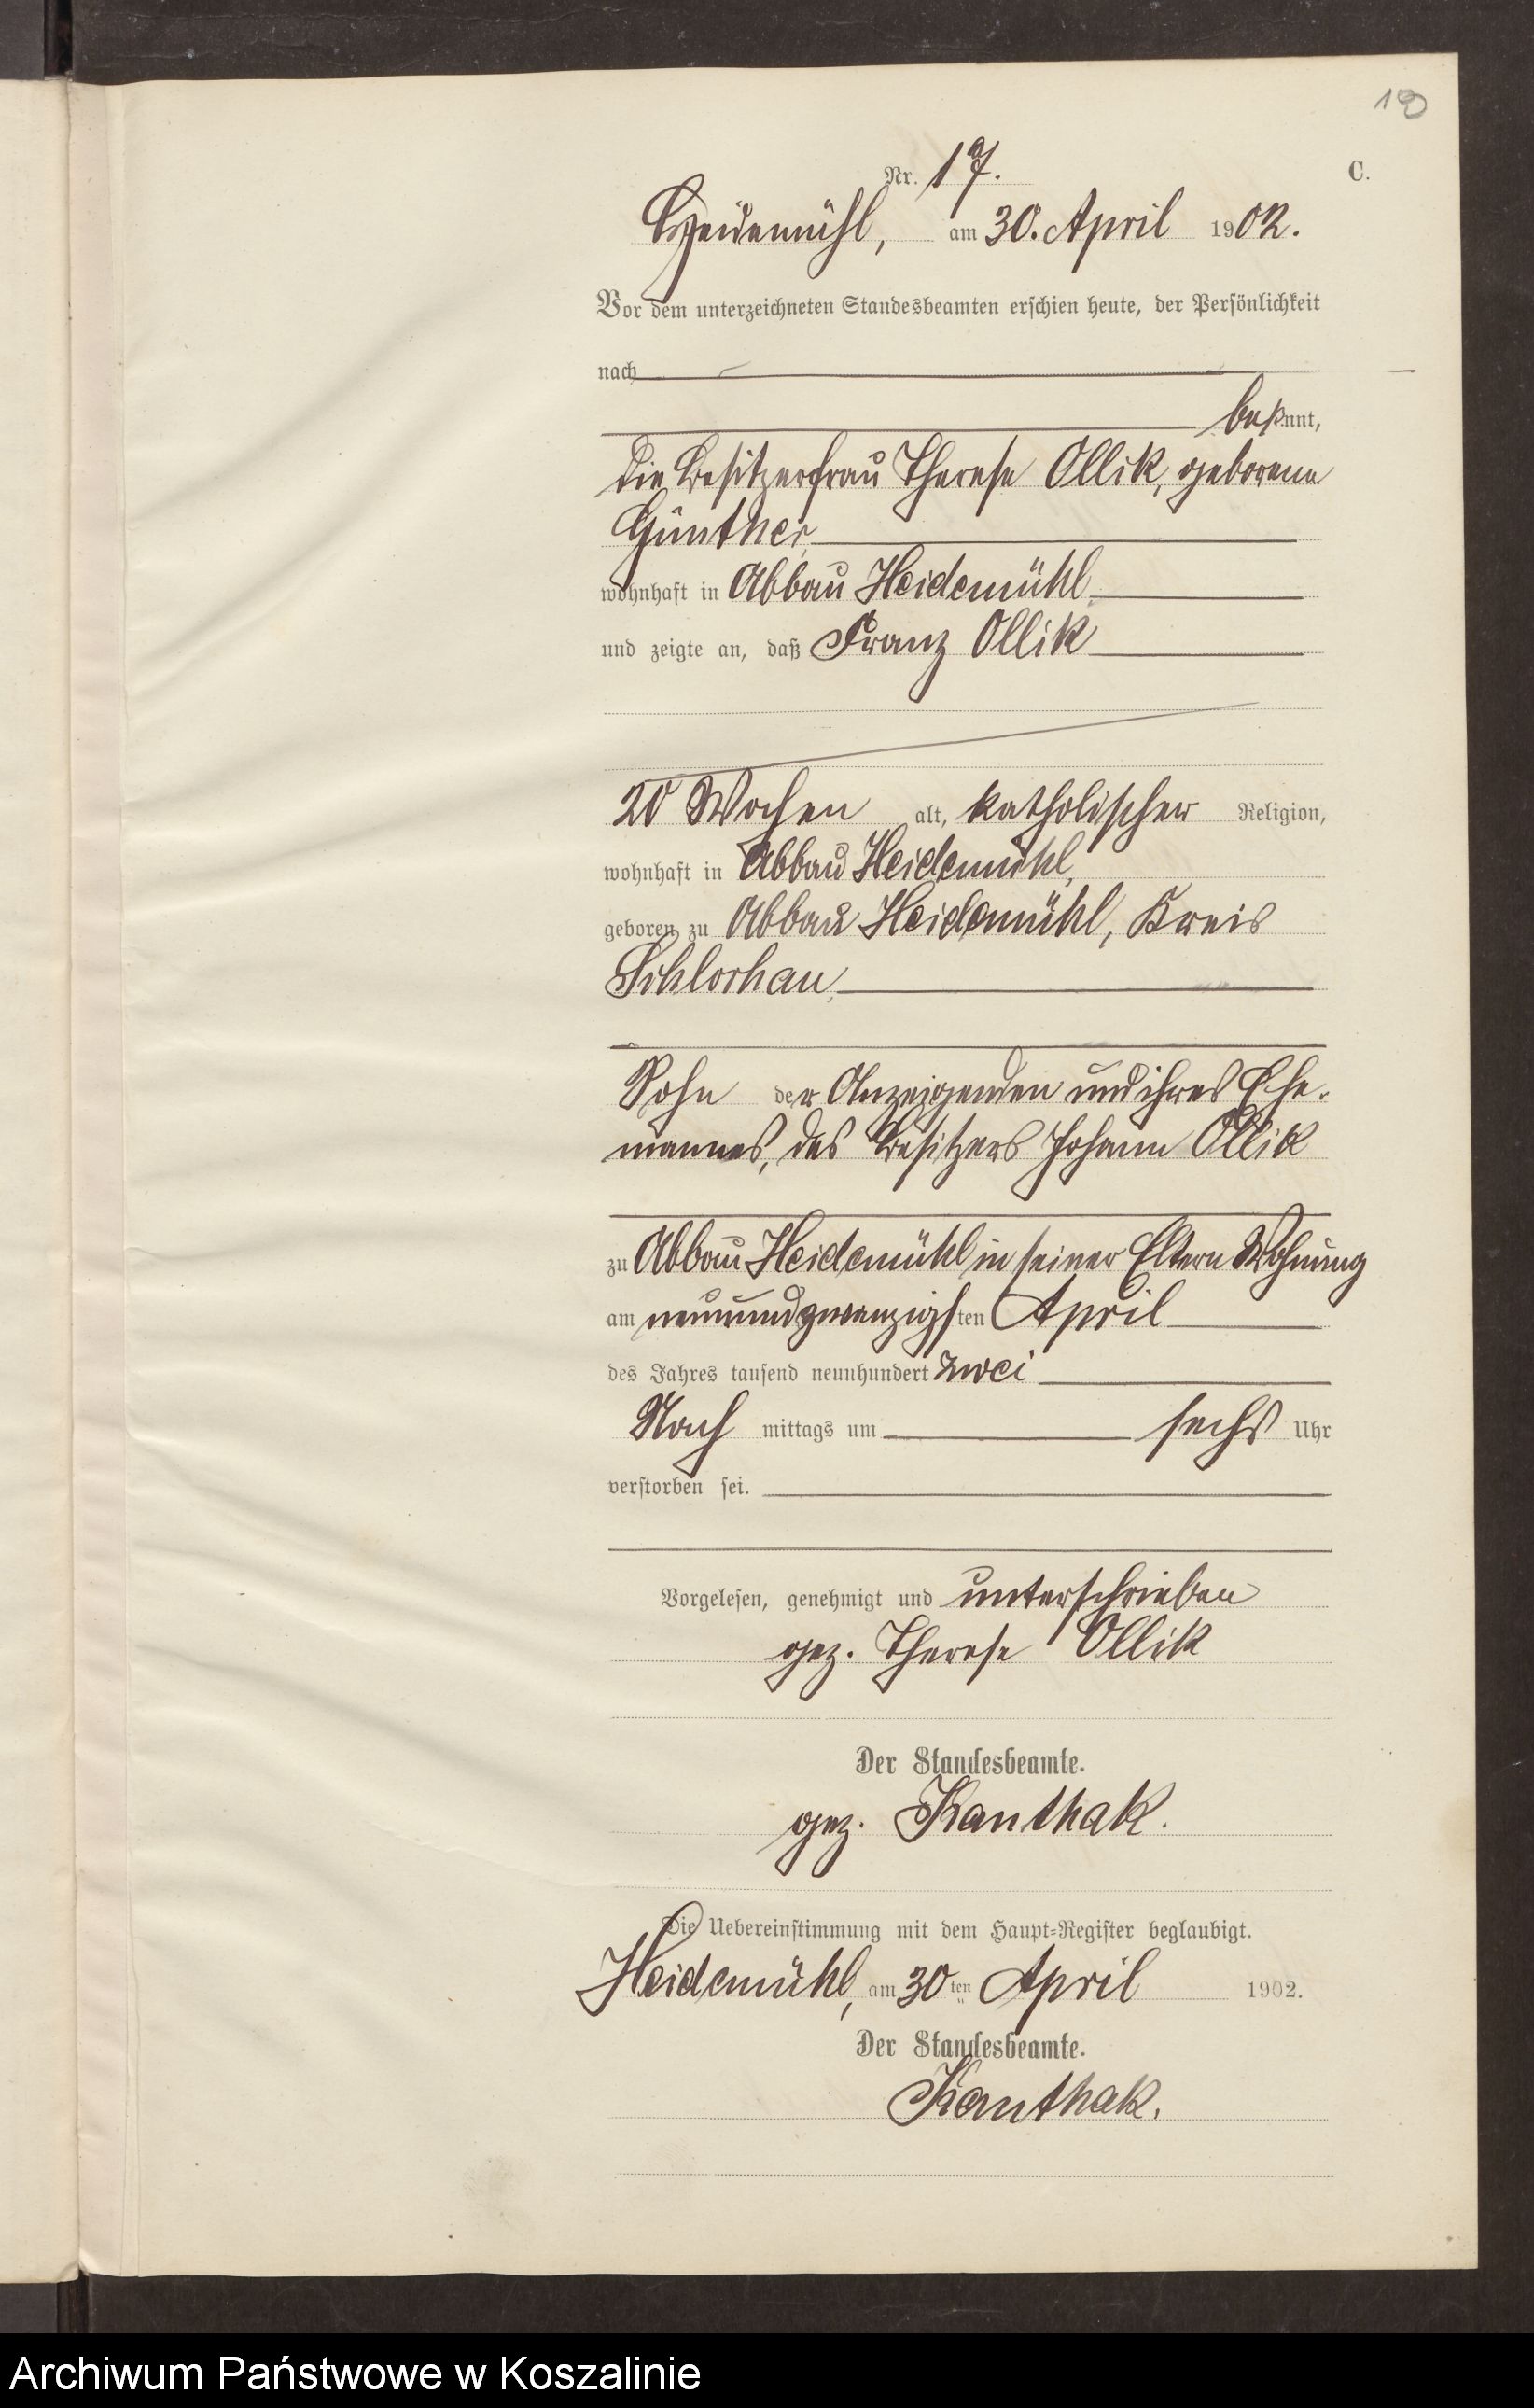 19
Nr. 17.
C.
Heidemühl, am 30. April 1902.
Vor dem unterzeichneten Standesbeamten erschien heute, der Persönlichkeit
nach
bekannt,
die Besitzerfrau Therese Ollik, geborene
Günther,
wohnhaft in Abbau Heidemühl,
und zeigte an, daß Franz Ollik
20 Wochen alt, katholischer Religion,
wohnhaft in Abbau Heidemühl,
geboren zu Abbau Heidemühl, Kreis
Schlochau,
Sohn der Anzeigenden und ihres Ehe-
mannes, des Besitzers Johann Ollik
zu Abbau Heidemühl in seiner Eltern Wohnung
am neunundzwanzigsten April
des Jahres tausend neunhundert zwei
Nach mittags um sechs Uhr
verstorben sei.
Vorgelesen, genehmigt und unterschrieben
gez. Therese Ollik
Der Standesbeamte.
gez. Kanthak.
Die Uebereinstimmung mit dem Haupt-Register beglaubigt.
Heidemühl, am 30ten April 1902.
Der Standesbeamte.
Kanthak.
Archiwum Państwowe w Koszalinie